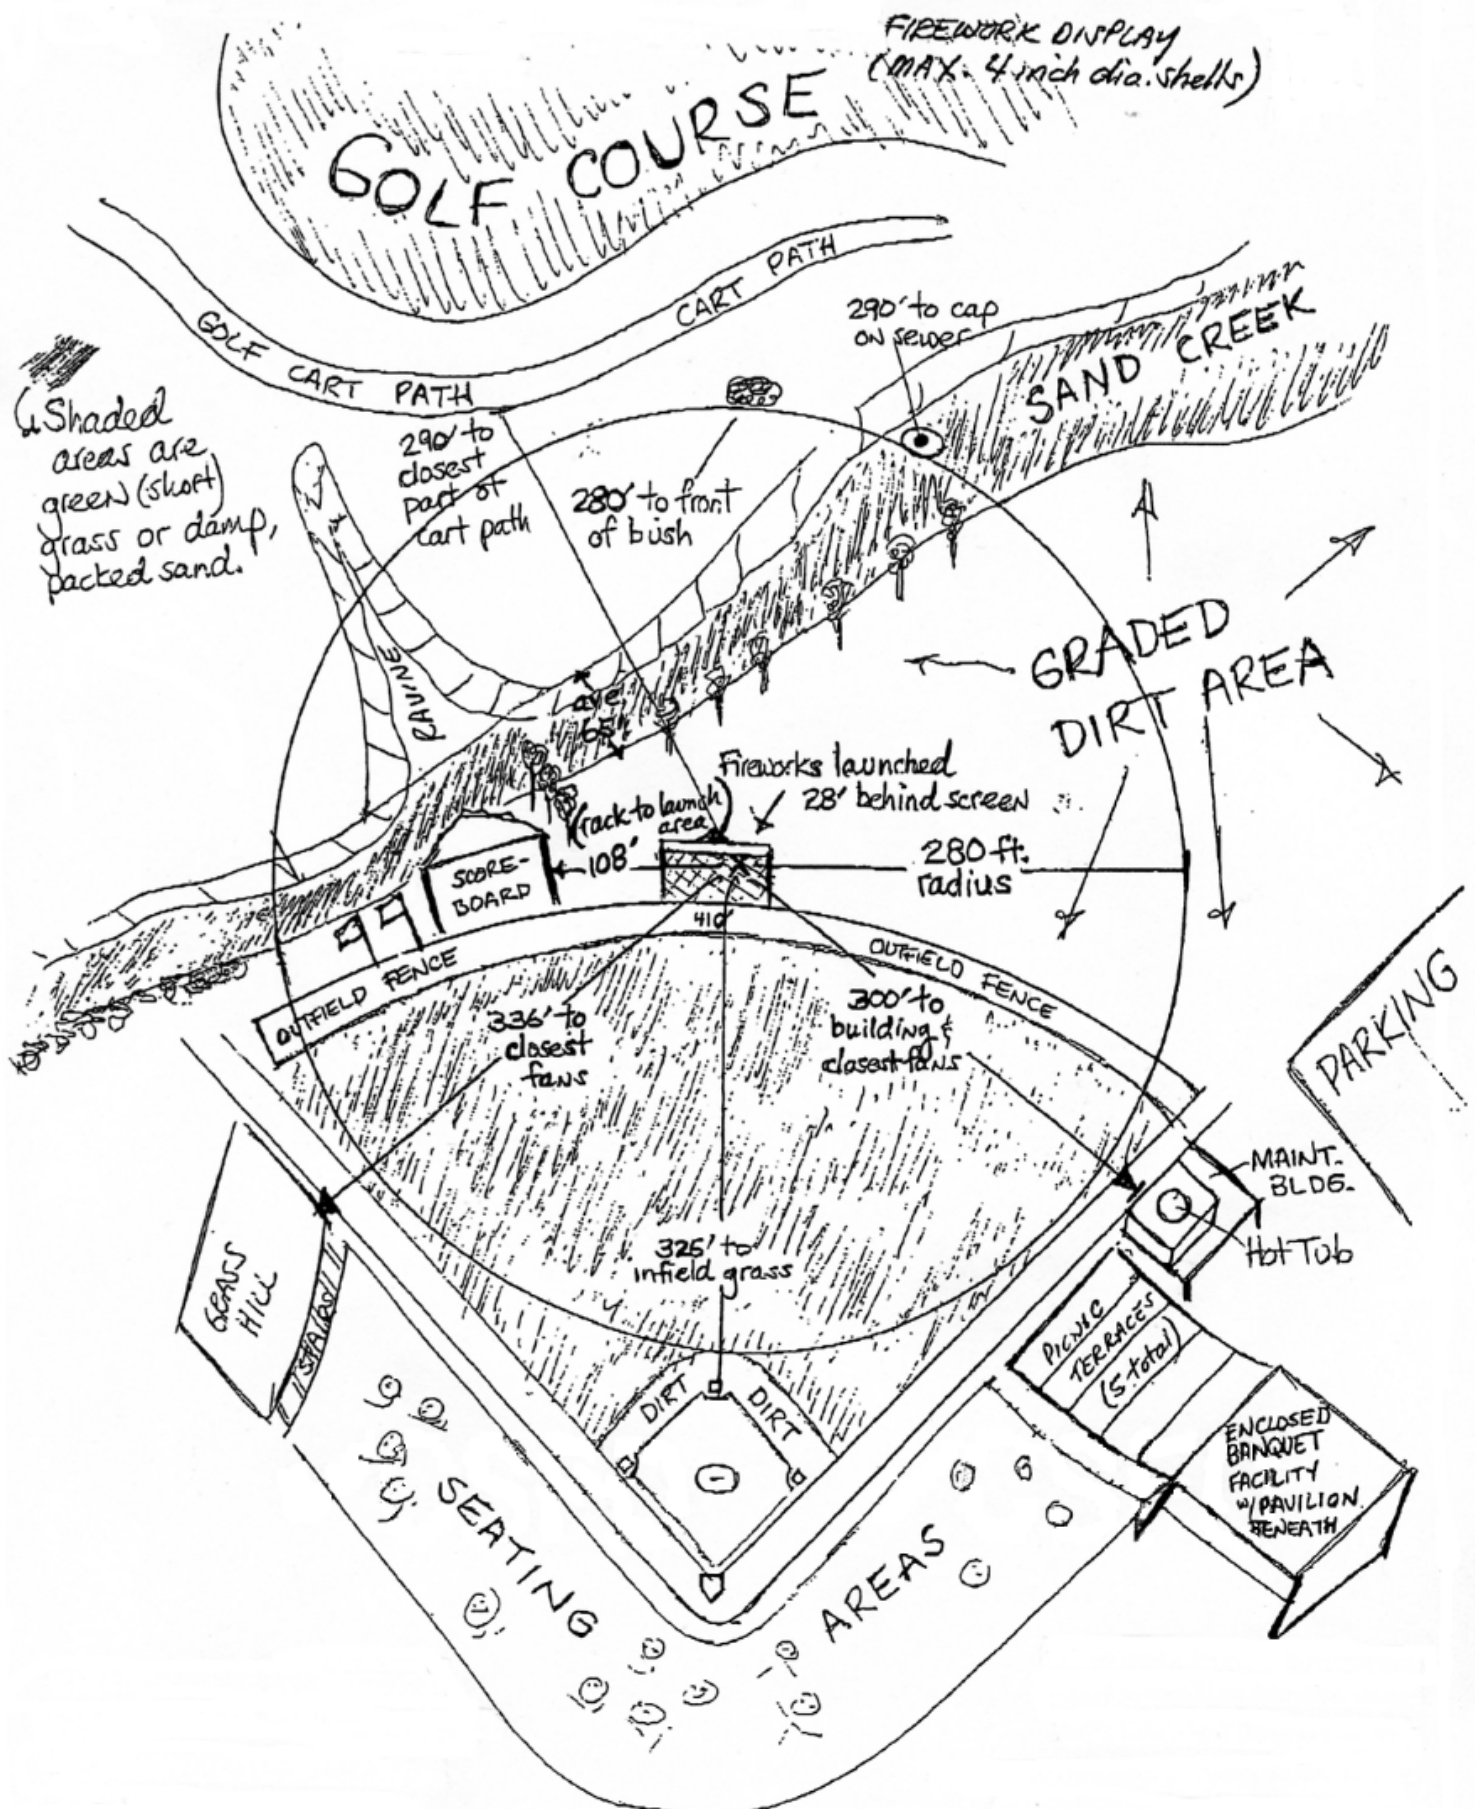 FIREWORK DISPLAY
(MAX. 4 inch dia. shells)
GOLF COURSE
GOLF CART PATH
CART PATH
290' to cap
on sewer
SAND CREEK
Shaded
areas are
green (short)
grass or damp,
packed sand.
290' to
closest
part of
cart path
280' to front
of bush
RAVINE
ave
65'
GRADED
DIRT AREA
Fireworks launched
28' behind screen
(rack to launch
area)
108'
280 ft.
radius
SCORE-
BOARD
410'
OUTFIELD FENCE
OUTFIELD FENCE
336' to
closest
fans
300' to
building &
closest fans
PARKING
MAINT.
BLDG.
Hot Tub
325' to
infield grass
GRASS
HILL
STAIRS
PICNIC
TERRACES
(5 total)
DIRT
DIRT
ENCLOSED
BANQUET
FACILITY
W/PAVILION
BENEATH
SEATING
AREAS